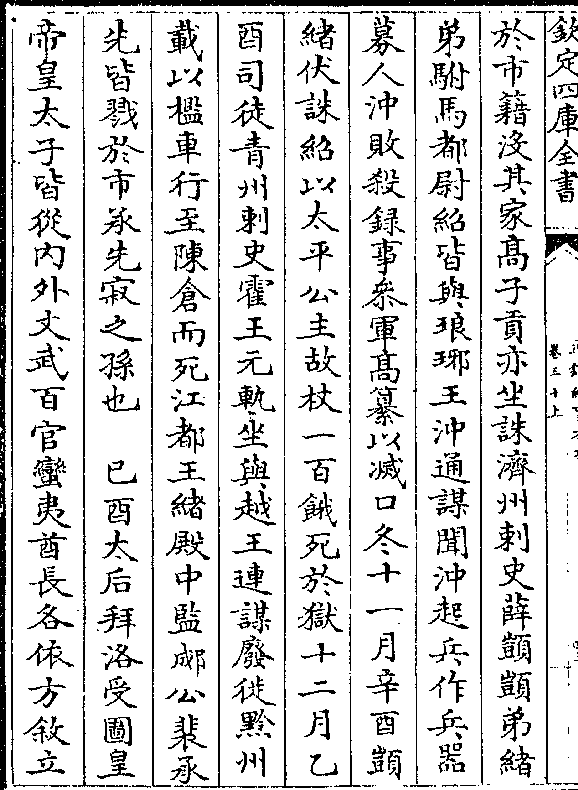 欽定四庫全書
卷三十上
於市藉没其家髙子貢亦坐誅濟州刺史薛顗顗弟緒
弟駙馬都尉紹皆與琅琊王沖通謀聞沖起兵作兵器
募人沖敗殺録事叅軍髙纂以滅口冬十一月辛酉顗
緒伏誅紹以太平公主故杖一百餓死於獄十二月乙
酉司徒青州刺史霍王元軌坐與越王連謀廢徙黔州
載以檻車行至陳倉而死江都王緒殿中監郕公裴承
先皆戮於市承先寂之孫也　已酉太后拜洛受圖皇
帝皇太子皆從内外文武百官蠻夷酋長各依方敘立